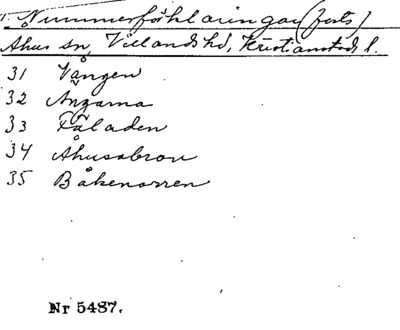 Nummerförklaringar (forts)
Åhus sn, Villands hd, Kristianstads l.
31 Vången
32 Ängarna
33 Fäladen
34 Åhusabron
35 Båkenorren
Nr 5487.